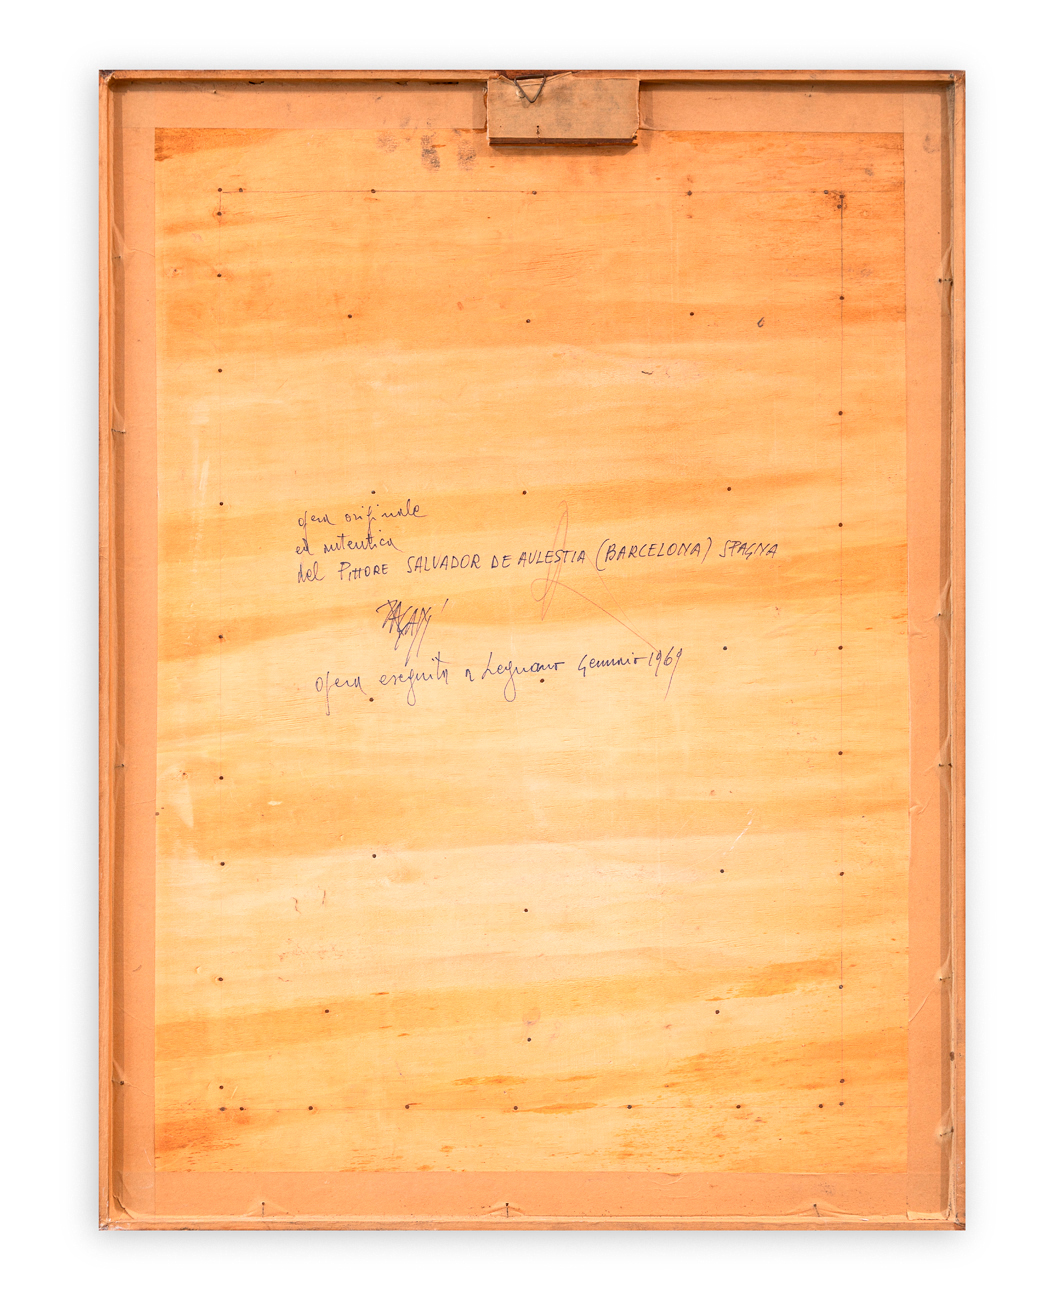 opera originale
ed autentica
del PITTORE SALVADOR DE AULESTIA (BARCELONA) SPAGNA
opera eseguita a Legnano Gennaio 1969